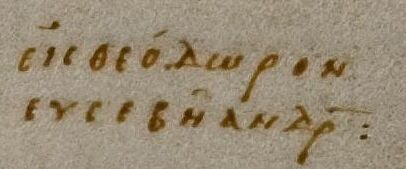 εἰς θεόδωρον
ευσεβῆ ανδρ: